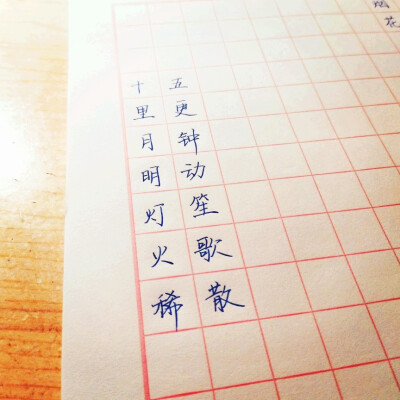 烟花
五更钟动笙歌散
十里月明灯火稀